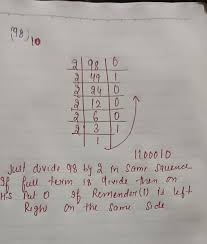 (98)10
2 98 0
2 49 1
2 24 0
2 12 0
2 6 0
2 3 1
1
1100010
Just divide 98 by 2 in same
If full term is divide then on
HS Put 0 If Remender(1) is left
Right on the same side